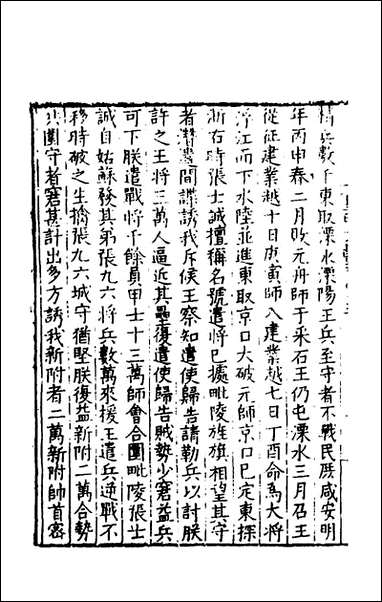 兵數千東取溧水溧陽王兵至守者不戰民庶咸安明
年丙申春二月敗元舟師于采石王仍屯溧水三月召王
從征建業越十日庚寅師入建業越七日丁酉命為大將
浮江而下水陸並進東取京口大破元師京口已定東探
浙右時張士誠擅稱名號遣將已據毗陵旌旗相望其守
者潛遣間諜誘我斥候王察知遣使歸告請勒兵以討朕
許之王將三萬人逼近其壘復遣使歸告賊勢少窘益兵
可下朕遣戰將千餘員甲士十三萬師會合圍毗陵張士
誠自姑蘇發其弟張九六將兵數萬來援王遣兵逆戰不
移時破之生擒張九六城守猶堅朕復益新附二萬合勢
共圍守者窘甚計出多方誘我新附者二萬新附帥首密